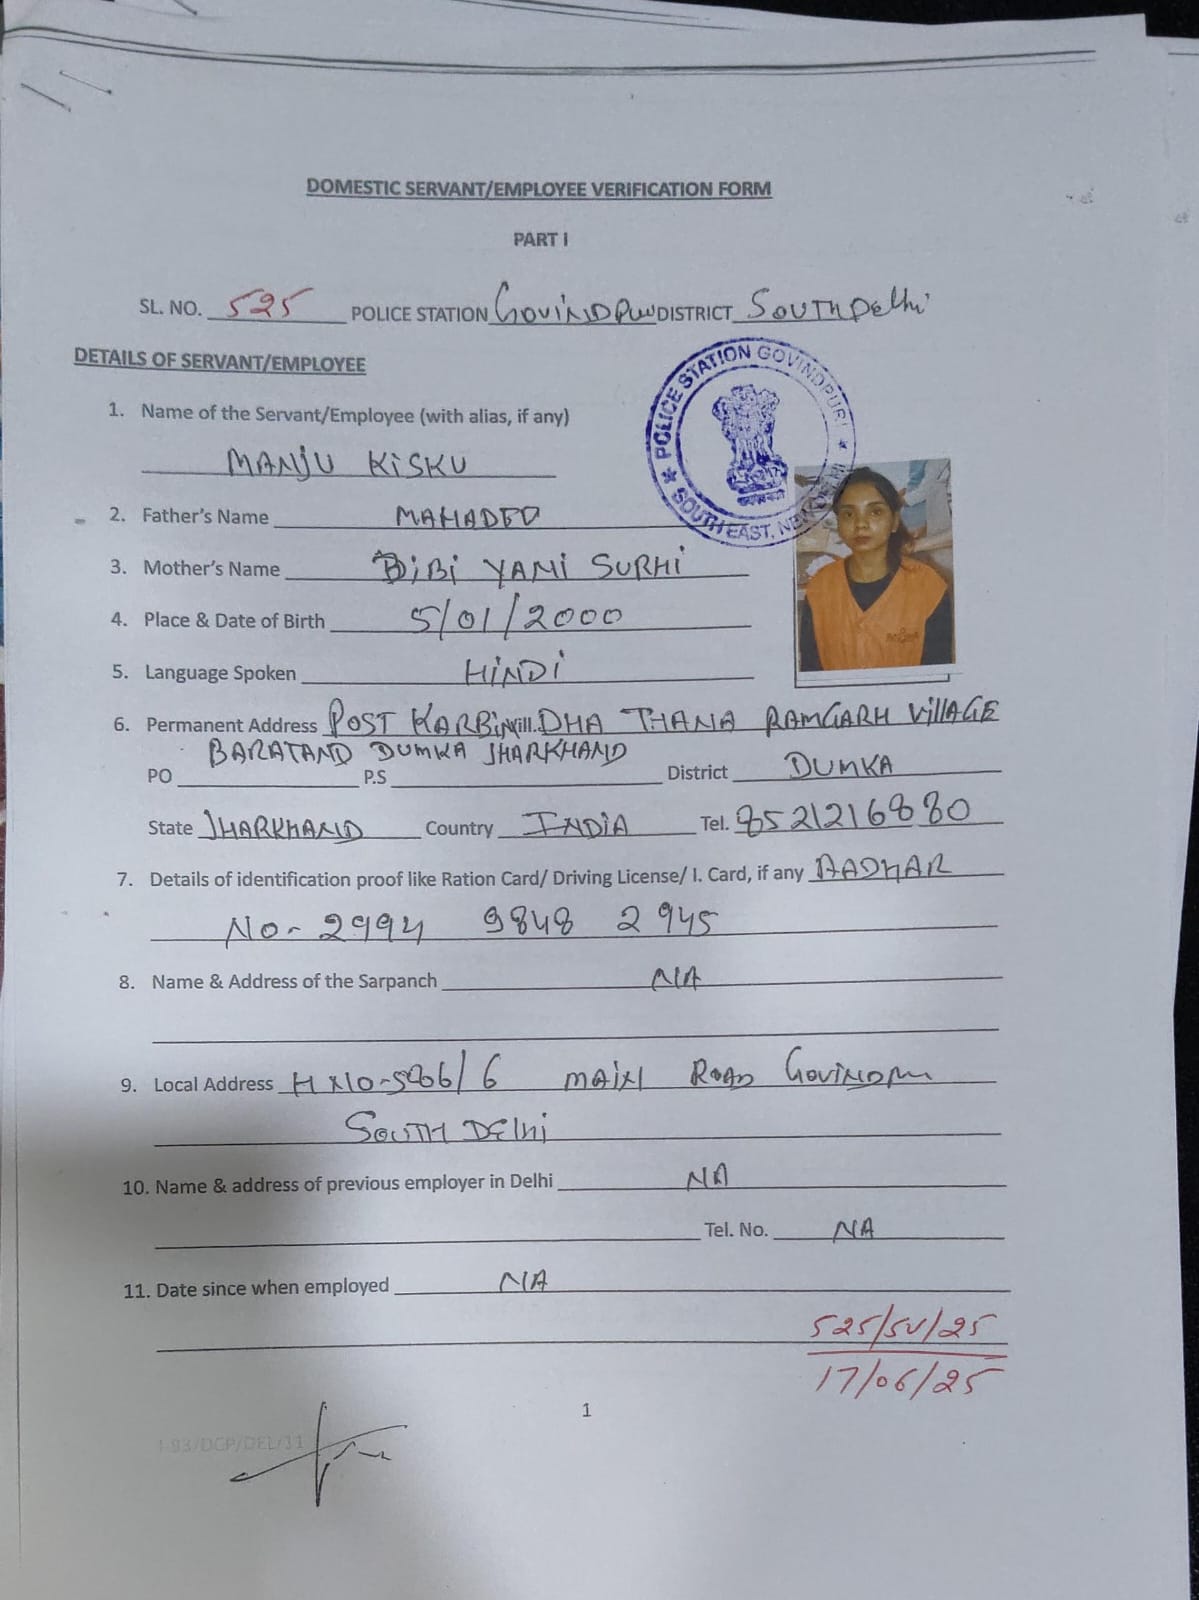 DOMESTIC SERVANT/EMPLOYEE VERIFICATION FORM
PART I
SL. NO. 525 POLICE STATION GOVINDPURI DISTRICT SOUTH Delhi
DETAILS OF SERVANT/EMPLOYEE
POLICE STATION GOVINDPURI
SOUTH EAST, NEW DELHI
1. Name of the Servant/Employee (with alias, if any)
MANJU KISKU
2. Father's Name MAHADEO
3. Mother's Name BIBI YAMI SURHI
4. Place & Date of Birth 5/01/2000
5. Language Spoken HINDI
6. Permanent Address POST KARBIN Vill. DHA THANA RAMGARH VIllAGE
BARATAND DUMKA JHARKHAND
PO P.S District DUMKA
State JHARKHAND Country INDIA Tel. 8521216880
7. Details of identification proof like Ration Card/ Driving License/ I. Card, if any AADHAR
No- 2994 9848 2945
8. Name & Address of the Sarpanch N/A
9. Local Address H NO- /6 MAIN ROAD GOVINDPURI
SOUTH DElhi
10. Name & address of previous employer in Delhi NA
Tel. No. NA
11. Date since when employed N/A
525/SV/25
17/06/25
1